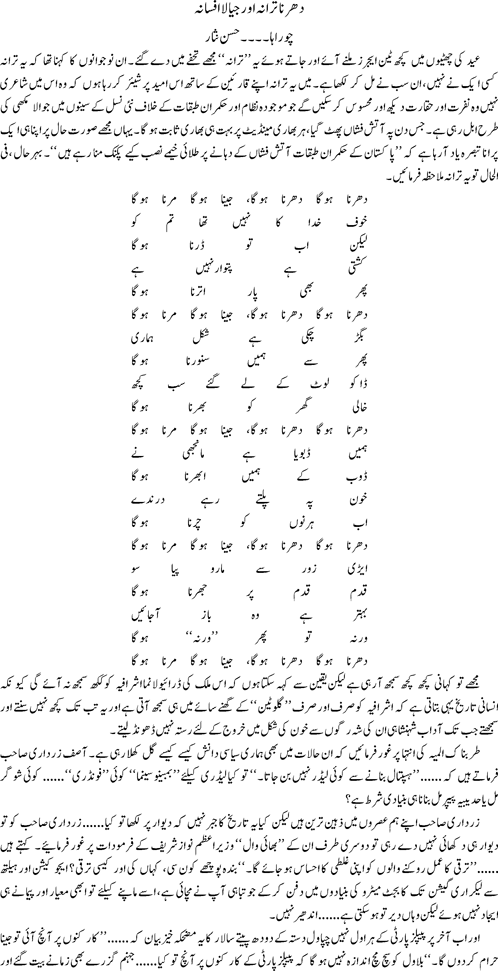 دھرنا ترانہ اور جیالا افسانہ
چوراہا۔۔۔۔حسن نثار
عید کی چھٹیوں میں کچھ ٹین ایجرز ملنے آئے اور جاتے ہوئے یہ ’’ترانہ‘‘ مجھے تحفے میں دے گئے۔ ان نوجوانوں کا کہنا تھا کہ یہ ترانہ
کسی ایک نے نہیں، ان سب نے مل کر لکھا ہے۔ میں یہ ترانہ اپنے قارئین کے ساتھ اس امید پر شیئر کر رہا ہوں کہ وہ اس میں شاعری
نہیں وہ نفرت اور حقارت دیکھ اور محسوس کر سکیں گے جو موجودہ نظام اور حکمران طبقات کے خلاف نئی نسل کے سینوں میں جوالا مکھی کی
طرح ابل رہی ہے۔ جس دن یہ آتش فشاں پھٹ گیا، ہر بھاری مینڈیٹ پر بہت ہی بھاری ثابت ہو گا۔ یہاں مجھے صورت حال پر اپنا ہی ایک
پرانا تبصرہ یاد آ رہا ہے کہ ’’پاکستان کے حکمران طبقات آتش فشاں کے دہانے پر طلائی خیمے نصب کیے پکنک منا رہے ہیں‘‘۔ بہرحال، فی
الحال تو یہ ترانہ ملاحظہ فرمائیں۔
دھرنا ہو گا دھرنا ہو گا، جینا ہو گا مرنا ہو گا
خوف خدا کا نہیں تھا تم کو
لیکن اب تو ڈرنا ہو گا
کشتی ہے پتوار نہیں ہے
پھر بھی پار اترنا ہو گا
دھرنا ہو گا دھرنا ہو گا، جینا ہو گا مرنا ہو گا
بگڑ چکی ہے شکل ہماری
پھر سے ہمیں سنورنا ہو گا
ڈاکو لوٹ کے لے گئے سب کچھ
خالی گھر کو بھرنا ہو گا
دھرنا ہو گا دھرنا ہو گا، جینا ہو گا مرنا ہو گا
ہمیں ڈبویا ہے مانجھی نے
ڈوب کے ہمیں ابھرنا ہو گا
خون پہ پلتے رہے درندے
اب ہرنوں کو چرنا ہو گا
دھرنا ہو گا دھرنا ہو گا، جینا ہو گا مرنا ہو گا
ایڑی زور سے مارو پیا سو
قدم قدم پر جھرنا ہو گا
بہتر ہے وہ باز آجائیں
ورنہ تو پھر ’’ورنہ‘‘ ہو گا
دھرنا ہو گا دھرنا ہو گا، جینا ہو گا مرنا ہو گا
مجھے تو کہانی کچھ کچھ سمجھ آ رہی ہے لیکن یقین سے کہہ سکتا ہوں کہ اس ملک کی ڈرائیولا نما اشرافیہ کو ککھ سمجھ نہ آئے گی کیونکہ
انسانی تاریخ یہی بتاتی ہے کہ اشرافیہ کو صرف اور صرف ’’گلوٹین‘‘ کے گھنے سائے میں ہی سمجھ آتی ہے اور یہ تب تک کچھ نہیں سنتے اور
سمجھتے جب تک آداب شہنشاہی ان کی شہ رگوں سے خون کی شکل میں خروج کے لئے رستہ نہیں ڈھونڈ لیتے۔
طربناک المیہ کی انتہا پر غور فرمائیں کہ ان حالات میں بھی ہماری سیاسی دانش کیسے کیسے گل کھلا رہی ہے۔ آصف زرداری صاحب
فرماتے ہیں کہ......’’ہسپتال بنانے سے کوئی لیڈر نہیں بن جاتا۔‘‘ تو کیا لیڈری کیلئے ’’بمبینو سینما‘‘ کوئی ’’فونڈری‘‘...... کوئی شوگر
مل یا حدیبیہ پیپر مل بنانا ہی بنیادی شرط ہے؟
زرداری صاحب اپنے ہم عصروں میں ذہین ترین ہیں لیکن کیا یہ تاریخ کا جبر نہیں کہ دیوار پر لکھا تو کیا......زرداری صاحب کو تو
دیوار ہی دکھائی نہیں دے رہی تو دوسری طرف ان کے ’’بھائی وال‘‘ وزیراعظم نواز شریف کے فرمودات پر غور فرمائیے۔ کہتے ہیں
......’’ترقی کا عمل روکنے والوں کو اپنی غلطی کا احساس ہو جائے گا۔‘‘ بندہ پوچھے کون سی، کہاں کی اور کیسی ترقی؟ ایجوکیشن اور ہیلتھ
سے لیکر اری گیشن تک کا بجٹ میٹرو کی بنیادوں میں دفن کر کے جو تباہی آپ نے مچائی ہے، اسے ماپنے کیلئے تو ابھی معیار اور پیمانے ہی
ایجاد نہیں ہوئے لیکن وہاں دیر تو ہو سکتی ہے......اندھیر نہیں۔
اور اب آخر پر پیپلز پارٹی کے ہراول نہیں چپاول دستہ کے دودھ پیتے سالار کا یہ مضحکہ خیز بیان کہ......’’کارکنوں پر آنچ آئی تو جینا
حرام کر دوں گا۔‘‘ بلاول کو سچ مچ اندازہ نہیں ہو گا کہ پیپلز پارٹی کے کارکنوں پر آنچ تو کیا......جہنم گزرے بھی زمانے بیت گئے اور